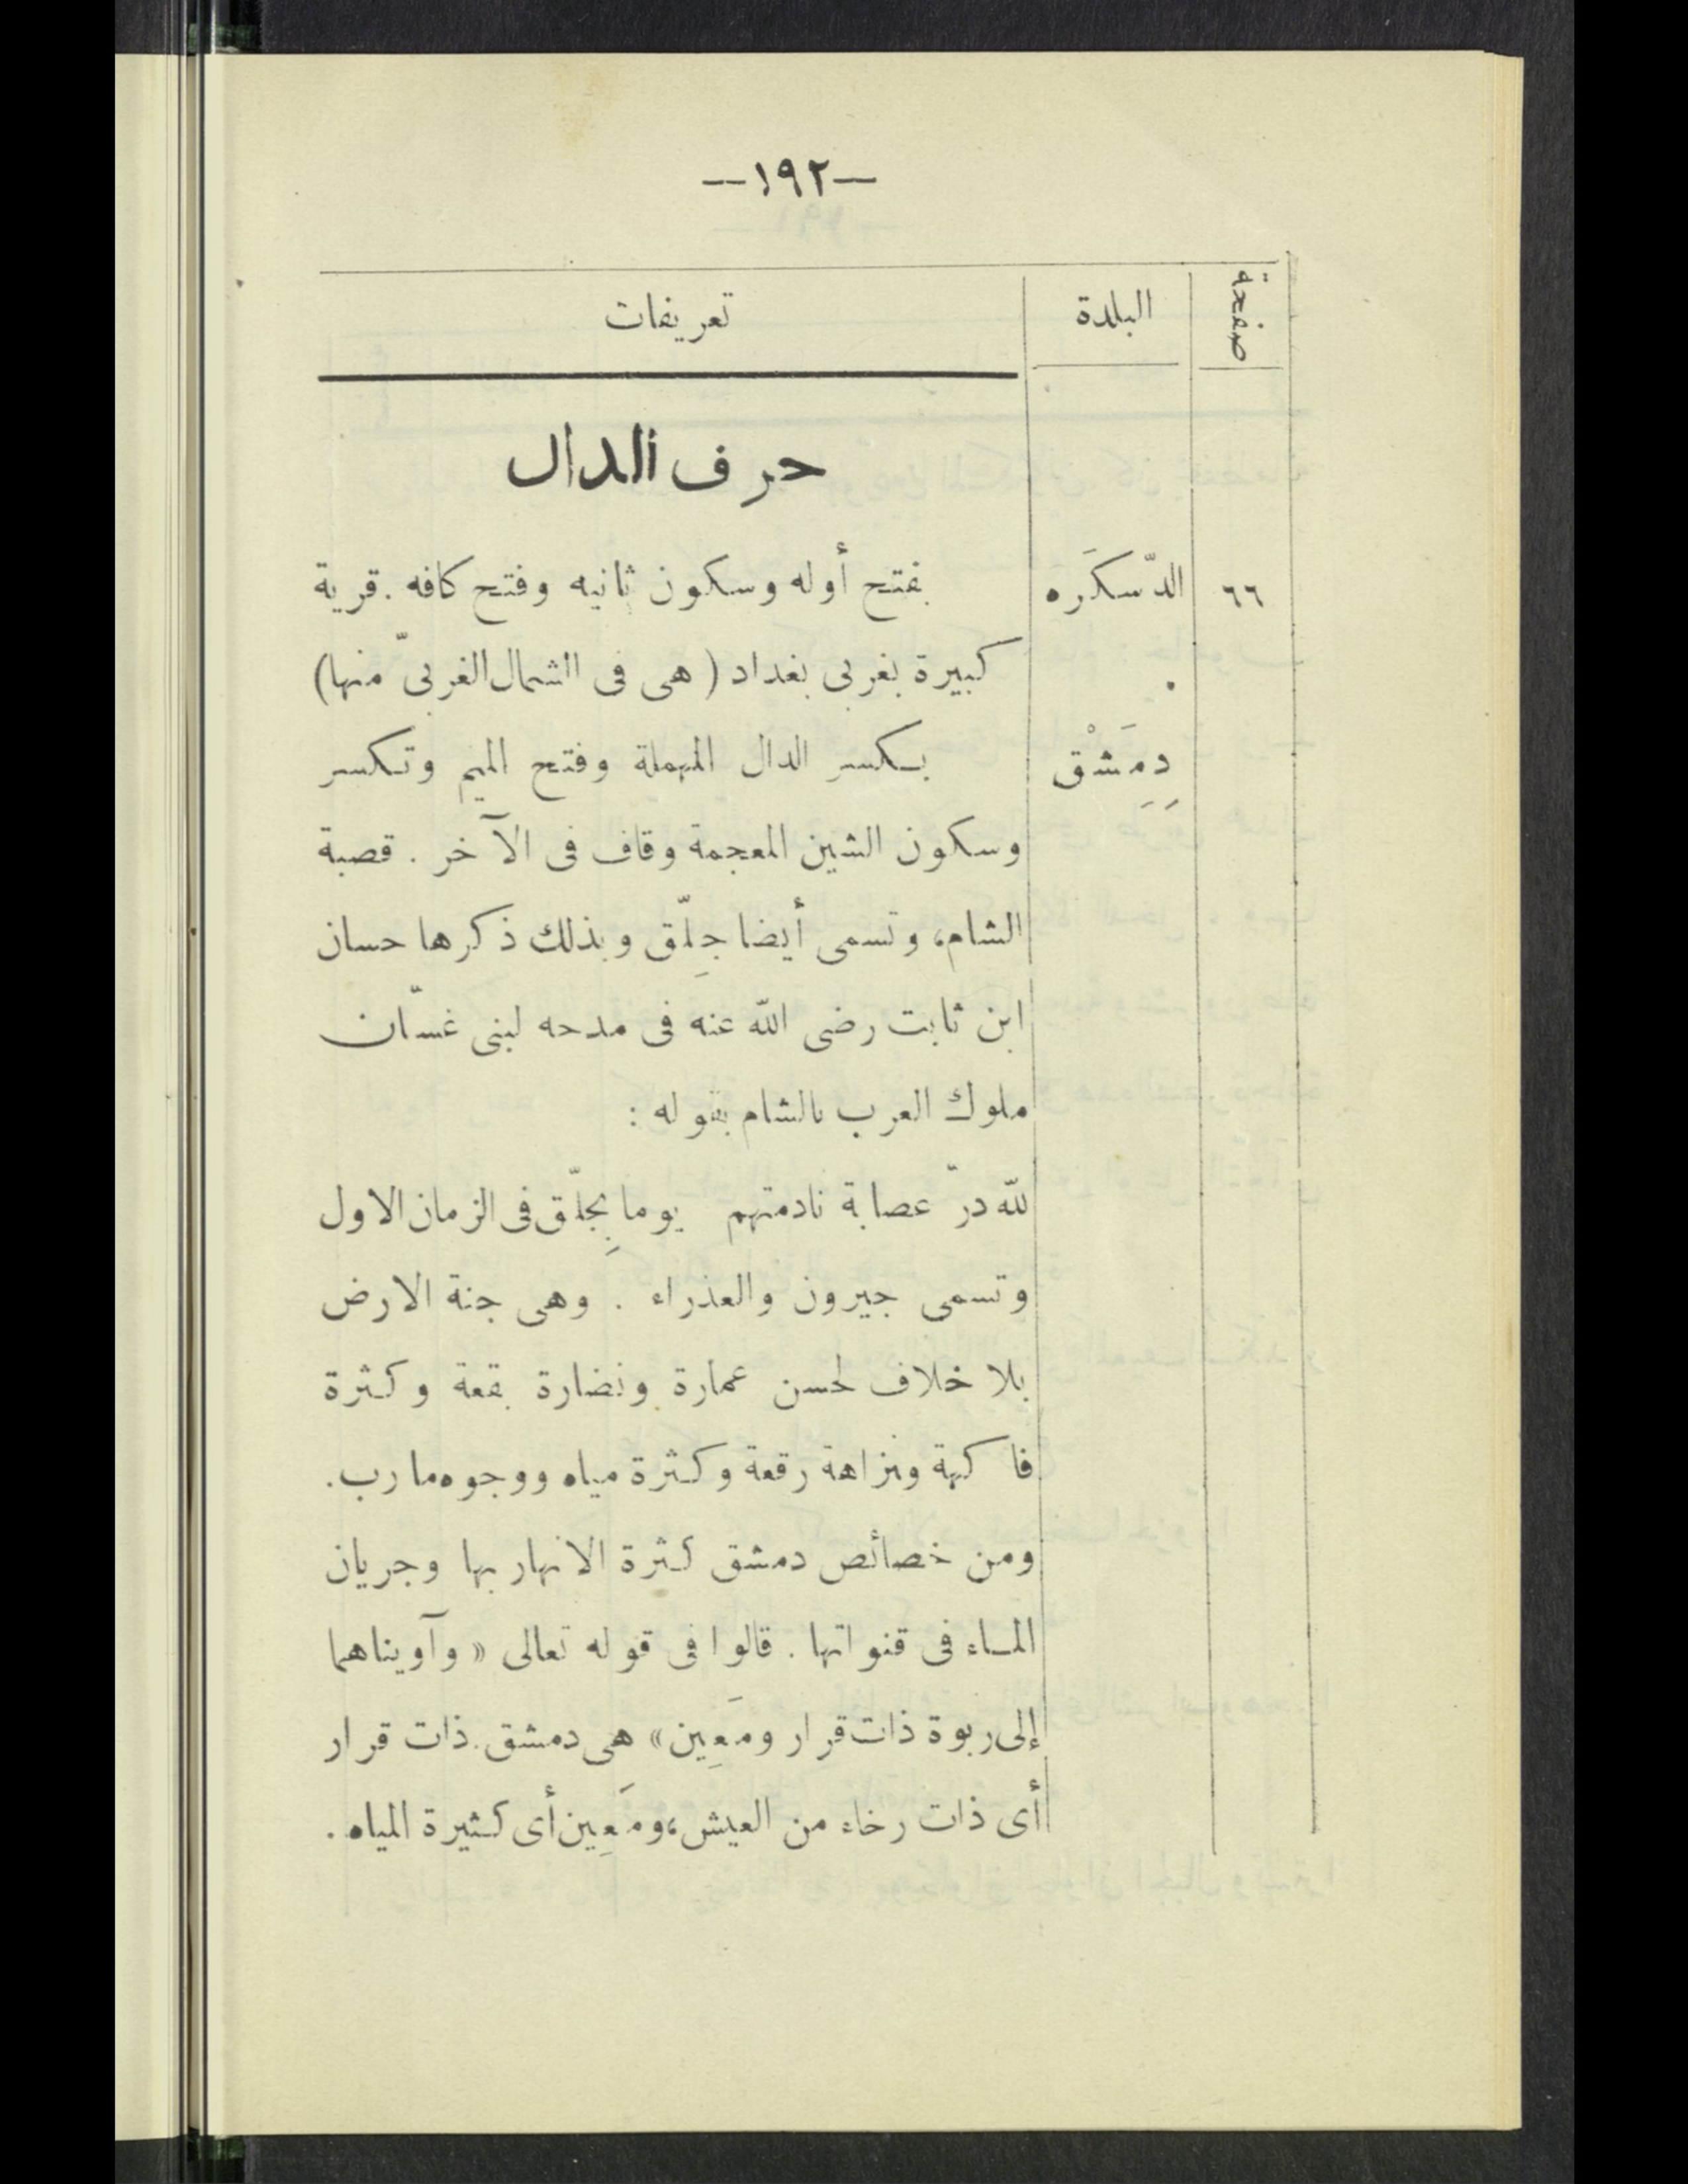 —١٩٢—
صفحة البلدة تعريفات
حرف الدال
٦٦ الدّسكَره بفتح أوله وسكون ثانيه وفتح كافه . قرية
كبيرة بغربى بغداد ( هى فى الشمال الغربىّ منها )
دِمَِشْق بكسر الدال المهملة وفتح الميم وتكسر
وسكون الشين المعجمة وقاف فى الآخر . قصبة
الشام، وتسمى أيضا جِلّق وبذلك ذكرها حسان
ابن ثابت رضى الله عنه فى مدحه لبنى غسّان
ملوك العرب بالشام بقوله :
لله درّ عصابة نادمتهم يوما بِجلّق فى الزمان الاول
وتسمى جيرون والعذراء . وهى جنة الارض
بلا خلاف لحسن عمارة ونضارة بقعة وكثرة
فاكهة ونزاهة رقعة وكثرة مياه ووجوه مارب .
ومن خصائص دمشق كثرة الانهار بها وجريان
الماء فى قنواتها . قالوا فى قوله تعالى « وآويناهما
إلى ربوة ذات قرار ومَعِين » هى دمشق . ذات قرار
أى ذات رخاء من العيش، ومَعِين أى كثيرة المياه .